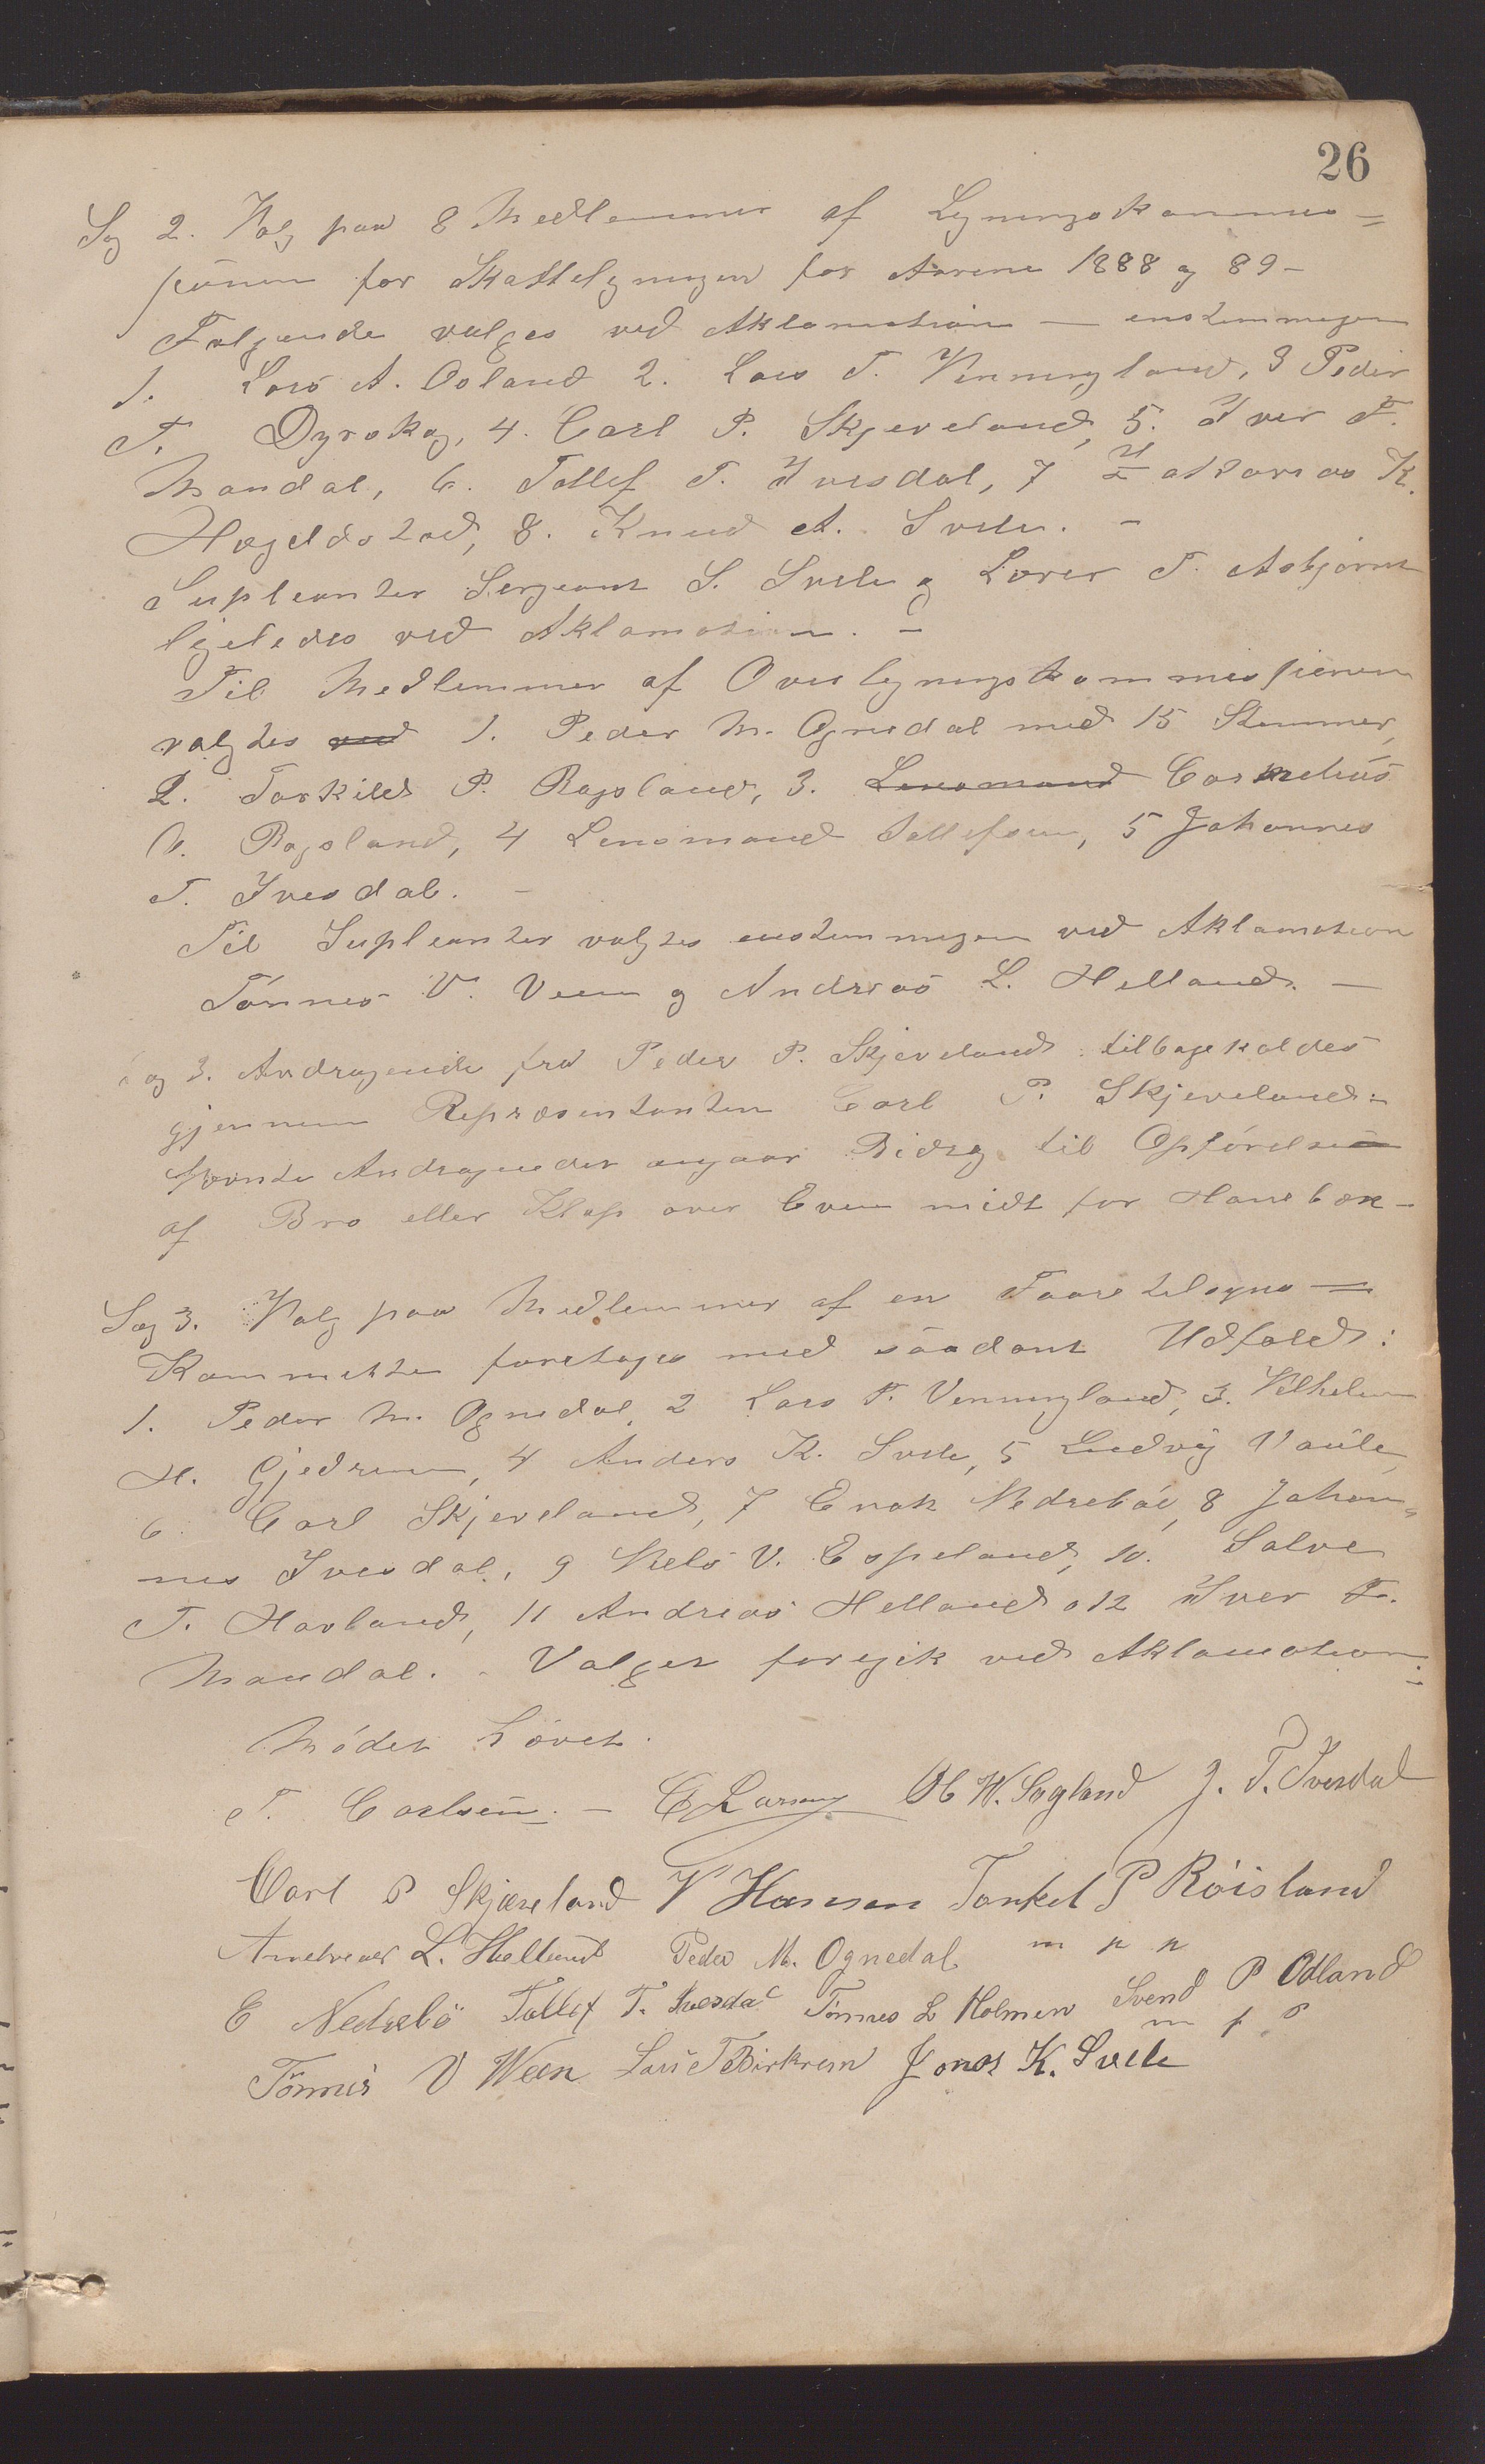 26
Sag 2. Valg paa 8 Medlemmer af Ligningskommis=
sionen for Skatteligningen for Aarene 1888 og 89 -
Følgende valges ved Aklamation — enstemmigen
1. Lars A. Osland 2. Lars T. Venningland, 3 Peder
T. Dyrskog, 4. Carl P. Skjeveland, 5. Iver T.
Mandal, 6. Tollef T. Ivesdal, 7 Zakarias K.
Hægelstad, 8. Knud A. Svele. -
Supleanter Sergeant S. Svele og Lærer T. Asbjørnt
ligeledes ved Aklamation. -
Til Medlemmer af Overligningskommissionen
valgtes ved 1. Peder M. Ognedal med 15 Stemmer,
2. Torkild P. Røgsland, 3. Lensmand Cornelius
Røgsland, 4 Lensmand Tollefsen, 5 Johannes
T. Ivesdal. -
Til Supleanter valgtes enstemmigen ved Aklamation
Tønnes V. Veen og Andreas L. Helland. —
og 3. Andragende fra Peder P. Skjeveland tilbagekaldes
gjennem Repræsentanten Carl P. Skjeveland:-
Andragender angaar Bidrg til Opførelse
af Bro eller Klop over Even midt for Hanebæk -
Sag 3. Valg paa Medlemmer af en Faaretilsyns =
Kommitte foretages med saadant Udfald:
1. Peder M. Ognedal, 2 Lars T. Venningland, 3. Vilhelm
H. Gjedrem, 4 Anders K. Svele, 5 Ludvig Vaule,
6. Carl Skjeveland, 7 Enok Nedrebø, 8 Johan=
nes Ivesdal, 9 Nels V. Espeland, 10. Salve
T. Hovland, 11 Andreas Helland o 12 Iver T.
Mandal. - Valget foregik ved Aklamation.-
Mødet hævet.
T. Carlsen. - C Larsen Ol W. Sagland J. T. Ivesdal
Carl P Skjæveland V Hansen Torkel P Röisland
Andreas L. Helland Peder M. Ognedal m p p
E Nedrebö Tollef T. Ivesdal Tönnes L Holmen Svend P Ødland
m p P
Tönnes V Ween Lars T Birkrem Jonas K. Svele